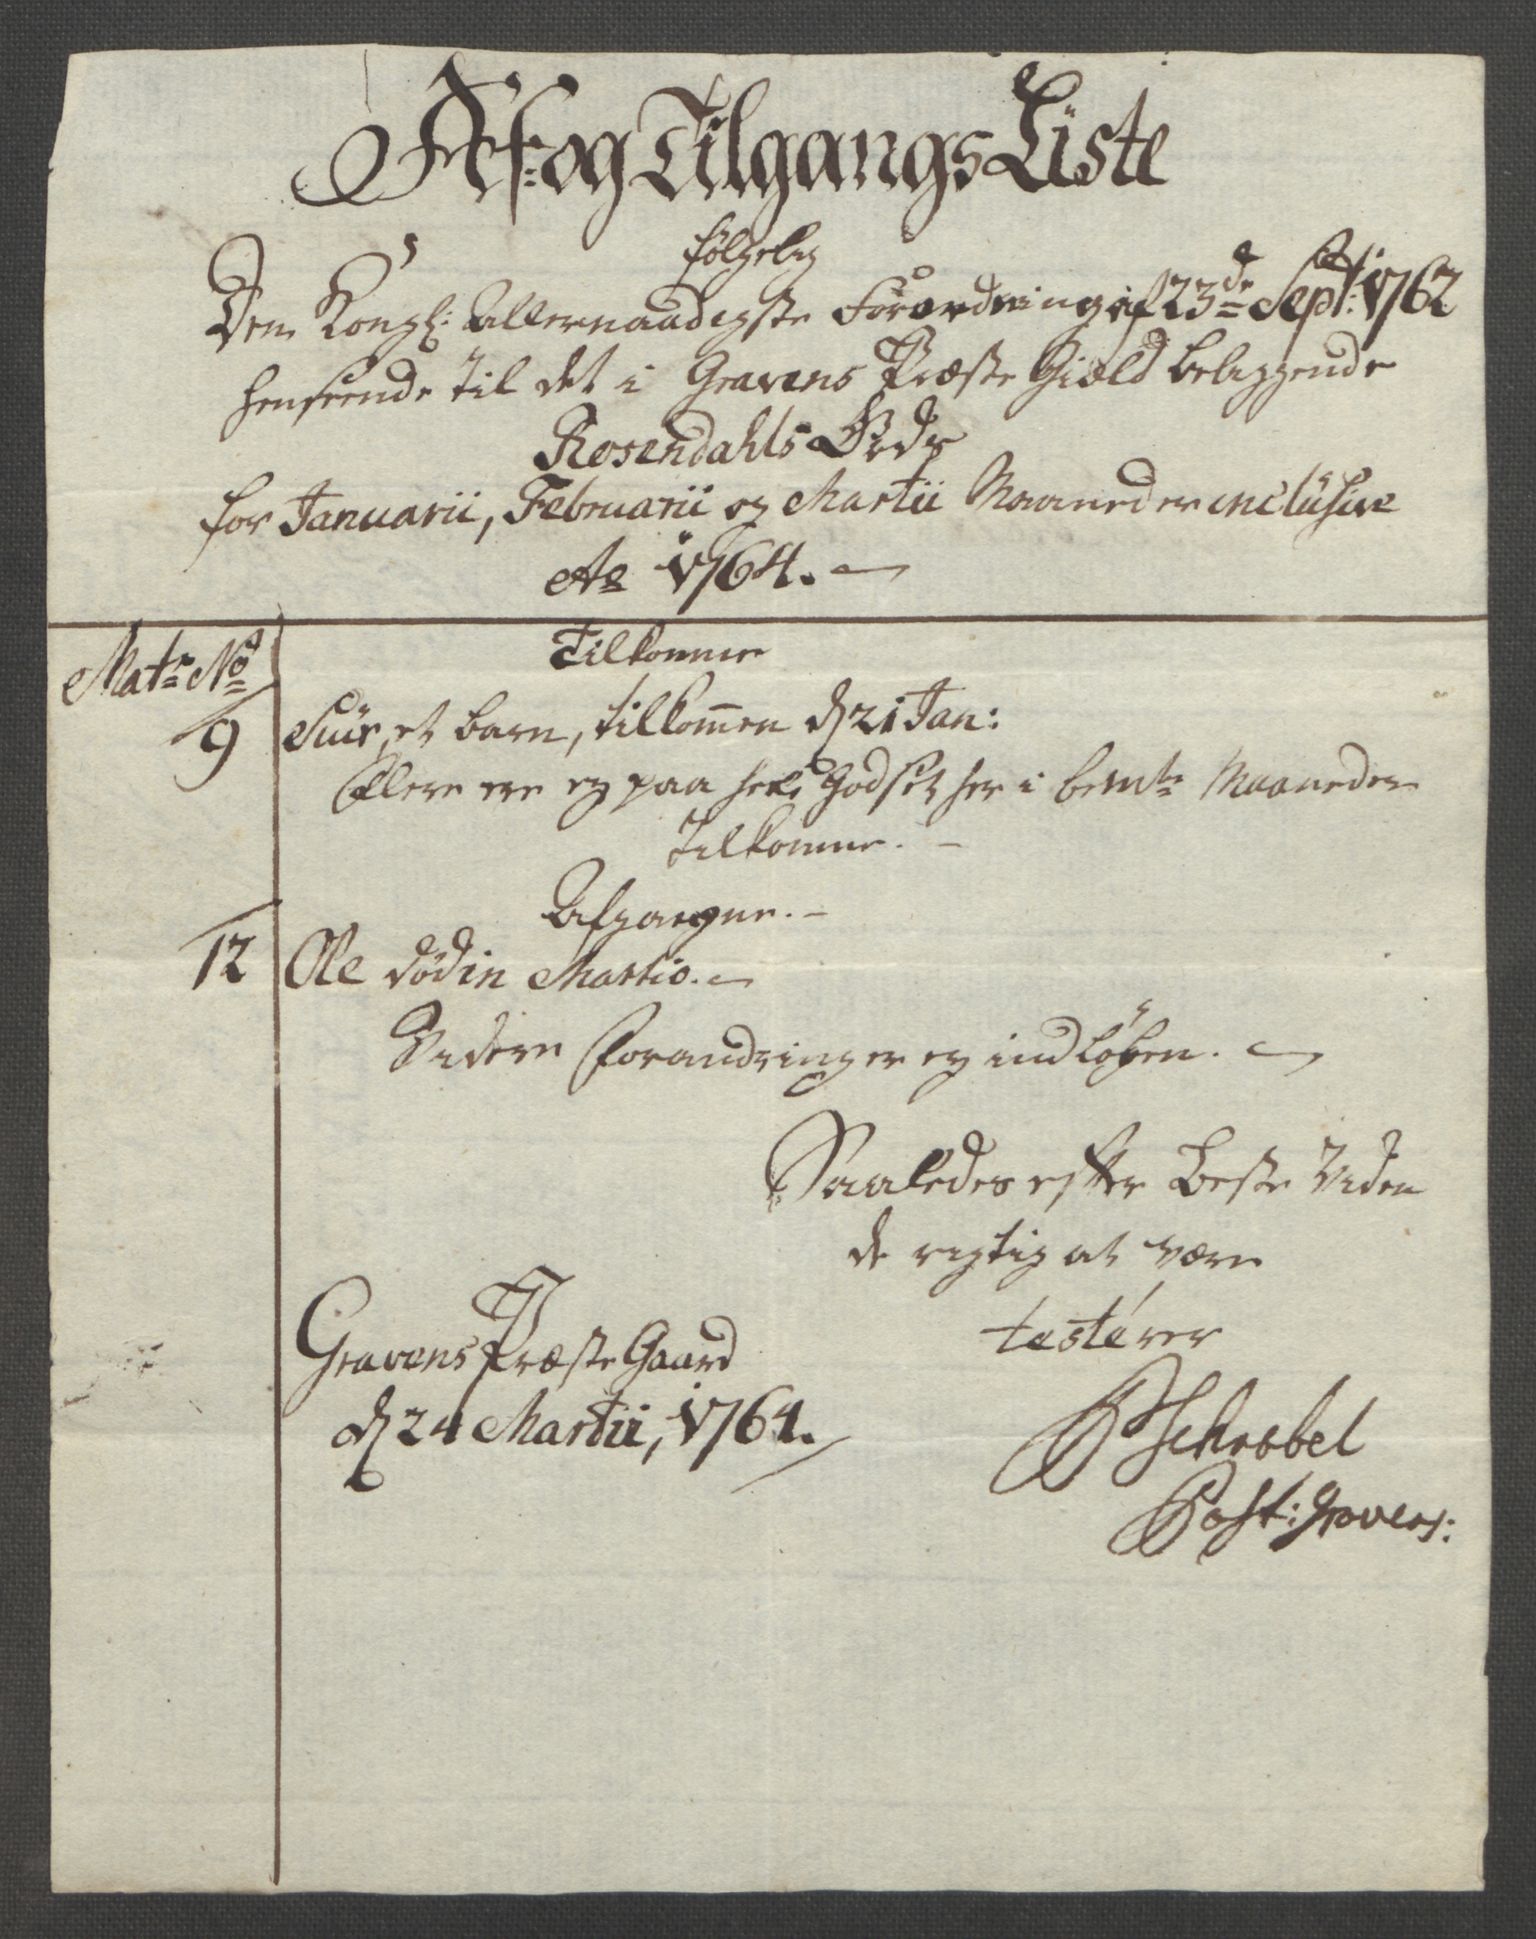 Af- og Tilgangs Liste
følgelig
Den Kongl: Allernaadigste Forordning af 23de Sept: 1762
henseende til det i Gravens Præste Giæld beliggende
Rosendahls Gods
for Januarii, Februarii og Martii Maaneder inclusive
Ao 1764.
Matr No
Tilkomne
9 Siur, et barn, tilkommen d 21 Jan:
Flere ere ey paa hele Godset her i bemte Maaneder
Tilkomne.
Afgangne.
12 Ole død in Martio.
Videre forandringer ey indløben.
Saaledes efter beste Viden
de rigtig at være
testerer
Gravens Præste Gaard
d 24 Martii, 1764.
Schrøbel
Past: Gravens: